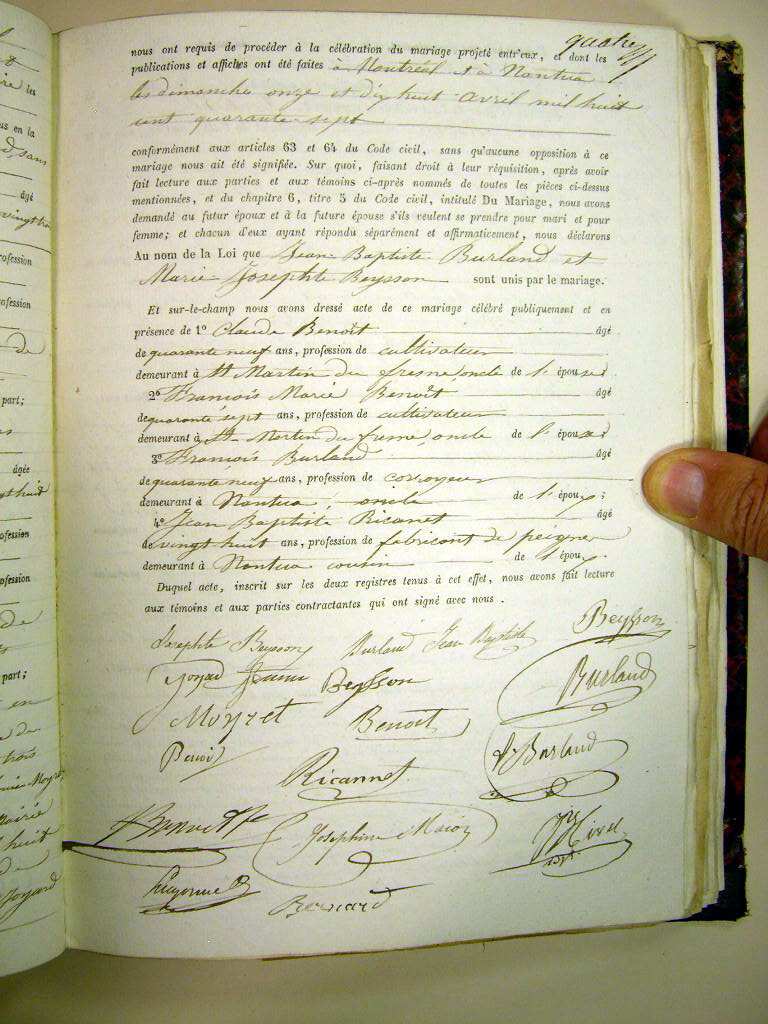 quatre
nous ont requis de procéder à la célébration du mariage projeté entr'eux, et dont les
publications et affiches ont été faites à Montréal et à Nantua
les dimanches onze et dix huit avril mil huit
cent quarante sept
conformément aux articles 63 et 64 du Code civil, sans qu'aucune opposition à ce
mariage nous ait été signifiée. Sur quoi, faisant droit à leur réquisition, après avoir
fait lecture aux parties et aux témoins ci-après nommés de toutes les pièces ci-dessus
mentionnées, et du chapitre 6, titre 5 du Code civil, intitulé Du Mariage, nous avons
demandé au futur époux et à la future épouse s'ils veulent se prendre pour mari et pour
femme; et chacun d'eux ayant répondu séparément et affirmaticement, nous déclarons
Au nom de la Loi que Jean Baptiste Burland et
Marie Josephte Beysson sont unis par le mariage.
Et sur-le-champ nous avons dressé acte de ce mariage célébré publiquement et en
présence de 1º Claude Benoît âgé
de quarante neuf ans, profession de cultivateur
demeurant à St Martin du fresne oncle de l'épouse
2º François Marie Benoît âgé
de quarante sept ans, profession de cultivateur
demeurant à St Martin du fresne oncle de l'épouse
3º François Burland âgé
de quarante neuf ans, profession de corroyeur
demeurant à Nantua oncle de l'époux;
4º Jean Baptiste Ricanet âgé
de vingt huit ans, profession de fabricant de peignes
demeurant à Nantua cousin de l'époux
Duquel acte, inscrit sur les deux registres tenus à cet effet, nous avons fait lecture
aux témoins et aux parties contractantes qui ont signé avec nous.
Josephte Beysson Burland Jean Baptiste Beysson
Joyard Beysson Burland
Moyret Benoît
Benoit Burland
Ricannet
Josephine
Bernard